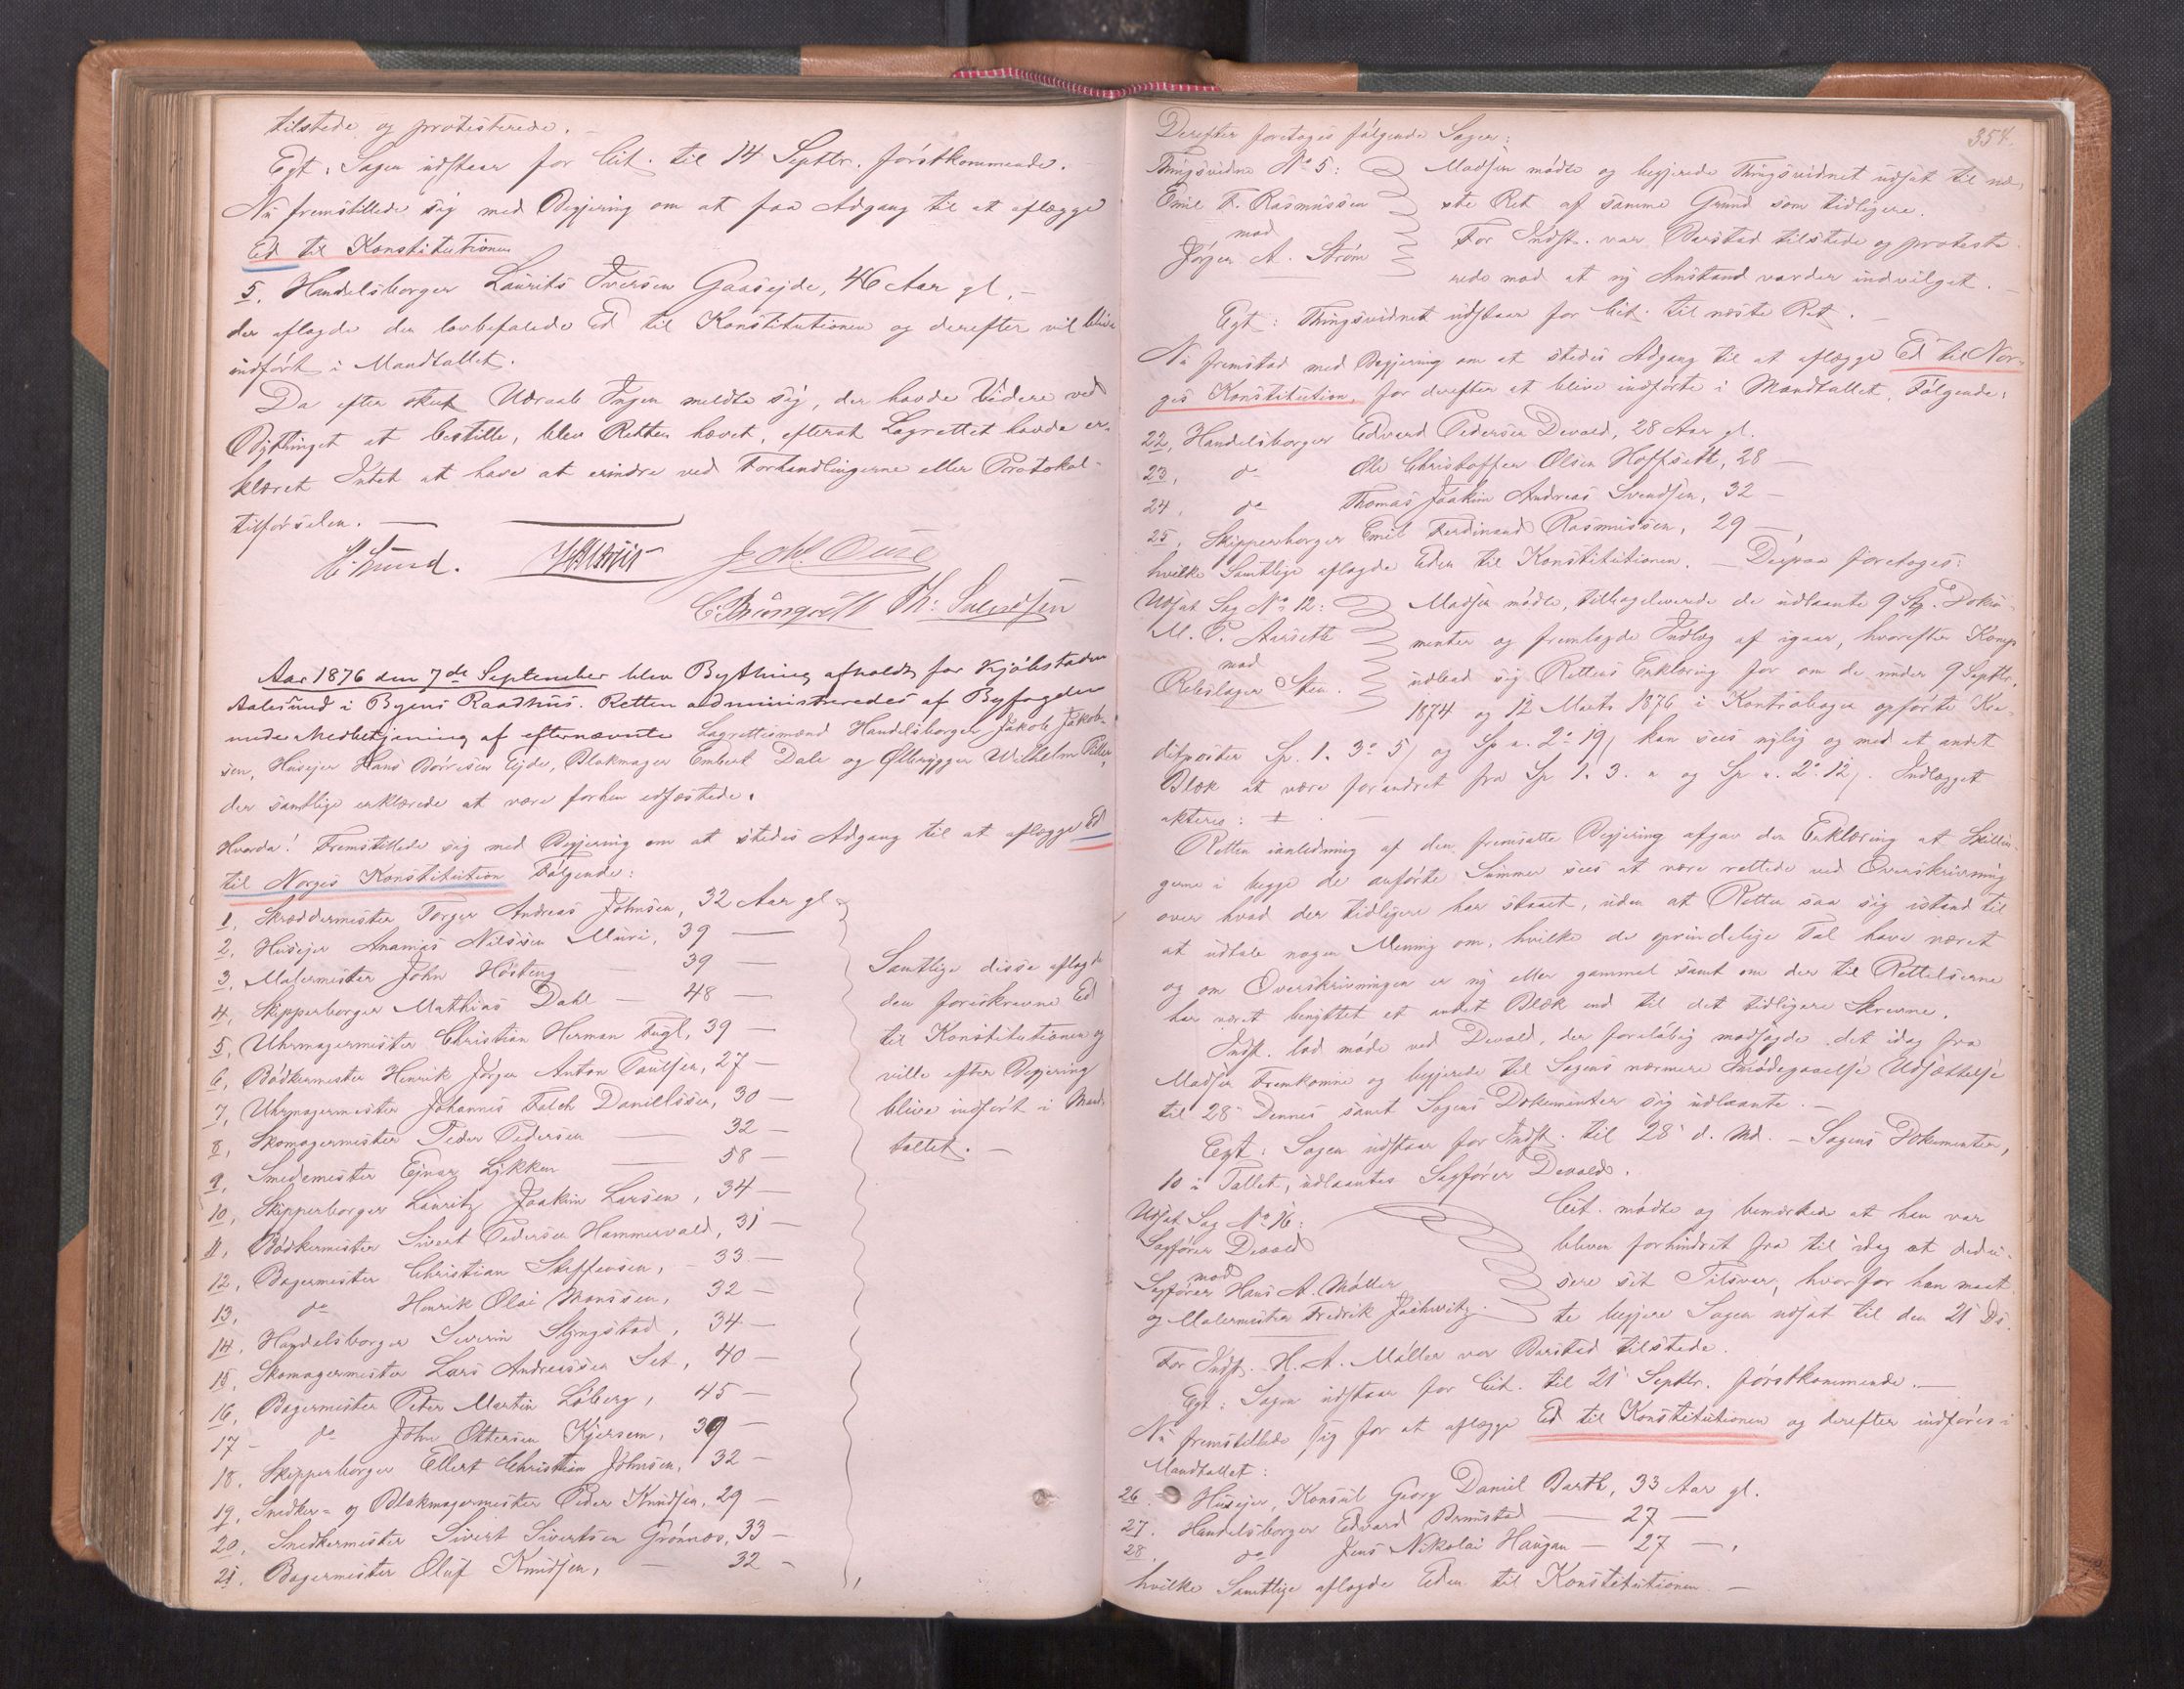 tilstede og protesterede. —
Egt: Sagen udstaar for Cit. til 14 Septbr. førstkommende.
Nu fremstillede sig med Begjering om at faa Adgang til at aflægge
Ed til Konstitutionen
5, Handelsborger Laurits Iversen Gaasejde, 46 Aar gl. —
der aflagde den lovbefalede Ed til Konstitutionen og derefter vil blive
indført i Mandtallet.
Da efter skeet Udraab Ingen meldte sig, der havde Videre ved
Bythinget at bestille, blev Retten hævet, efterat Lagrettet havde er-
klæret Intet at have at erindre ved Forhandlingerne eller Protokol-
tilførselen. —
Aar 1876 den 7de September blev Bything afholdt for Kjøbstaden
Aalesund i Byens Raadhus. Retten administreredes af Byfogden
under Medbetjening af efternævnte Lagrettesmænd Handelsborger Jakob Jakob-
sen, Husejer Hans Børresen Eijde, Blokmager Embert Dale og Ølbrygger Wilhelm
der samtlige erklærede at være forhen edfæstede.
Hvorda: Fremstillede sig med Begjering om at stedes Adgang til at aflægge Ed
til Norges Konstitution Følgende:
1, Skræddermester Torger Andreas Johnsen, 32 Aar gl.
2, Husejer Ananias Nilssen Muri, 39 —
3, Malermester John Høsteng — 39 —
4, Skipperborger Mathias Dahl — 48 —
5, Uhrmagermester Christian Herman Fugl, 39 —
6, Bødkermester Henrik Jørgen Anton Paulsen, 27 —
7, Uhrmagermester Johannes Falch Daniellssen, 30 —
8, Skomagermester Peder Pedersen — 32 —
9, Smedemester Ejnar Lykken — 58 —
10, Skipperborger Lauritz Joakim Larsen, 34 —
11, Bødkermester Sivert Pedersen Hammervold, 31 —
12, Bagermester Christian Steffensen, — 33 —
13, do Henrik Olai Monssen, 32 —
14, Handelsborger Severin Slyngstad, 34 —
15, Skomagermester Lars Andreassen Set, 40 —
16, Bagermester Peter Martin Løberg, 45 —
17 - do John Ottersen Kjersem, 39 —
18, Skipperborger Ellert Christian Johnsen, 32 —
19, Snedker- og Blokmagermester Peder Knudsen, 29 —
20, Snedkermester Sivert Sivertsen Grønnes, 33 —
21, Bagermester Oluf Knudsen, — 32 —
Samtlige disse aflagde
den foreskrevne Ed
til Konstitutionen og
ville efter Begjering
blive indført i Mand-
tallet. —
354.
Derefter foretoges følgende Sager:
Thingsvidne No 5:
Emil F. Rasmussen
mod
Jørgen A. Strøm
Madsen mødte og begjerede Thingsvidnet udsat til næ-
ste Ret af samme Grund som tidligere.
For Indst. var Barstad tilstede og proteste-
rede mod at ny Anstand vorder indvilget. —
Egt: Thingsvidnet udstaar for Cit. til næste Ret. —
Nu fremstod med Begjering om at stedes Adgang til at aflægge Ed til Nor-
ges Konstitution, for derefter at blive indførte i Mandtallet, Følgende:
22, Handelsborger Edvard Pedersen Devold, 28 Aar gl.
23, do Ole Christoffer Olsen Hoffseth, 28 —
24, do Thomas Joakim Andreas Svendsen, 32 —
25, Skipperborger Emil Ferdinand Rasmussen, 29 —,
hvilke Samtlige aflagde Eden til Konstitutionen. — Derpaa foretoges:
Udsat Sag No 12:
M. P. Aarseth
mod
Rebslager O Steen.
Madsen mødte, tilbageleverede de udlaante 9 St. Doku-
menter og fremlagde Indlæg af igaar, hvorefter Komp.
udbad sig Rettens Erklæring for om de under 9 Septbr.
1874 og 12 Marts 1876 i Kontrabogen opførte Kre-
ditposter Sp. 1. 3 o 5 / og Sp. a. 2 o 19 / kan sees nylig og med et andet
Blæk at være forandret fra Sp 1. 3. a og Sp a. 2 o 12 /. Indlægget
akteres: ± . —
Retten i anledning af den fremsatte Begjering afgav den Erklæring at Skillin-
gerne i begge de anførte Summer sees at være rettede ved Overskrivning
over hvad der tidligere har staaet, uden at Retten saa sig istand til
at udtale nogen Mening om, hvilke de oprindelige Tal have været
og om Overskrivningen er ny eller gammel samt om der til Rettelserne
har været benyttet et andet Blæk end til det tidligere Skrevne.
Indst. lod møde ved Devold, der foreløbig modsagde det idag fra
Madsen Fremkomne og begjerede til Sagens nærmere Imødegaaelse Udsættelse
til 28 Dennes samt Sagens Dokumenter sig udlaante. —
Egt: Sagen udstaar for Indst. til 28 d. Md. — Sagens Dokumenter,
10 i Tallet, udlaantes Sagfører Devold.
Udsat Sag No 16:
Sagfører Devold
mod
Sagfører Hans A. Møller
og Malermester Fredrik
Cit. mødte og bemærkede at han var
bleven forhindret fra til idag at dedu-
sere sit Tilsvar, hvorfor han maat-
te begjere Sagen udsat til den 21 Ds.
For Indst. H. A. Møller var Barstad tilstede.
Egt: Sagen udstaar for Cit. til 21 Septbr. førstkommende. —
Nu fremstillede sig for at aflægge Ed til Konstitutionen og derefter indføres i
Mandtallet:
26. Husejer, Konsul Georg Daniel Barth, 33 Aar gl.
27. Handelsborger Edvard Brunstad — 27 —
28, do Jens Nikolai Haugan — 27 —,
hvilke Samtlige aflagde Eden til Konstitutionen —